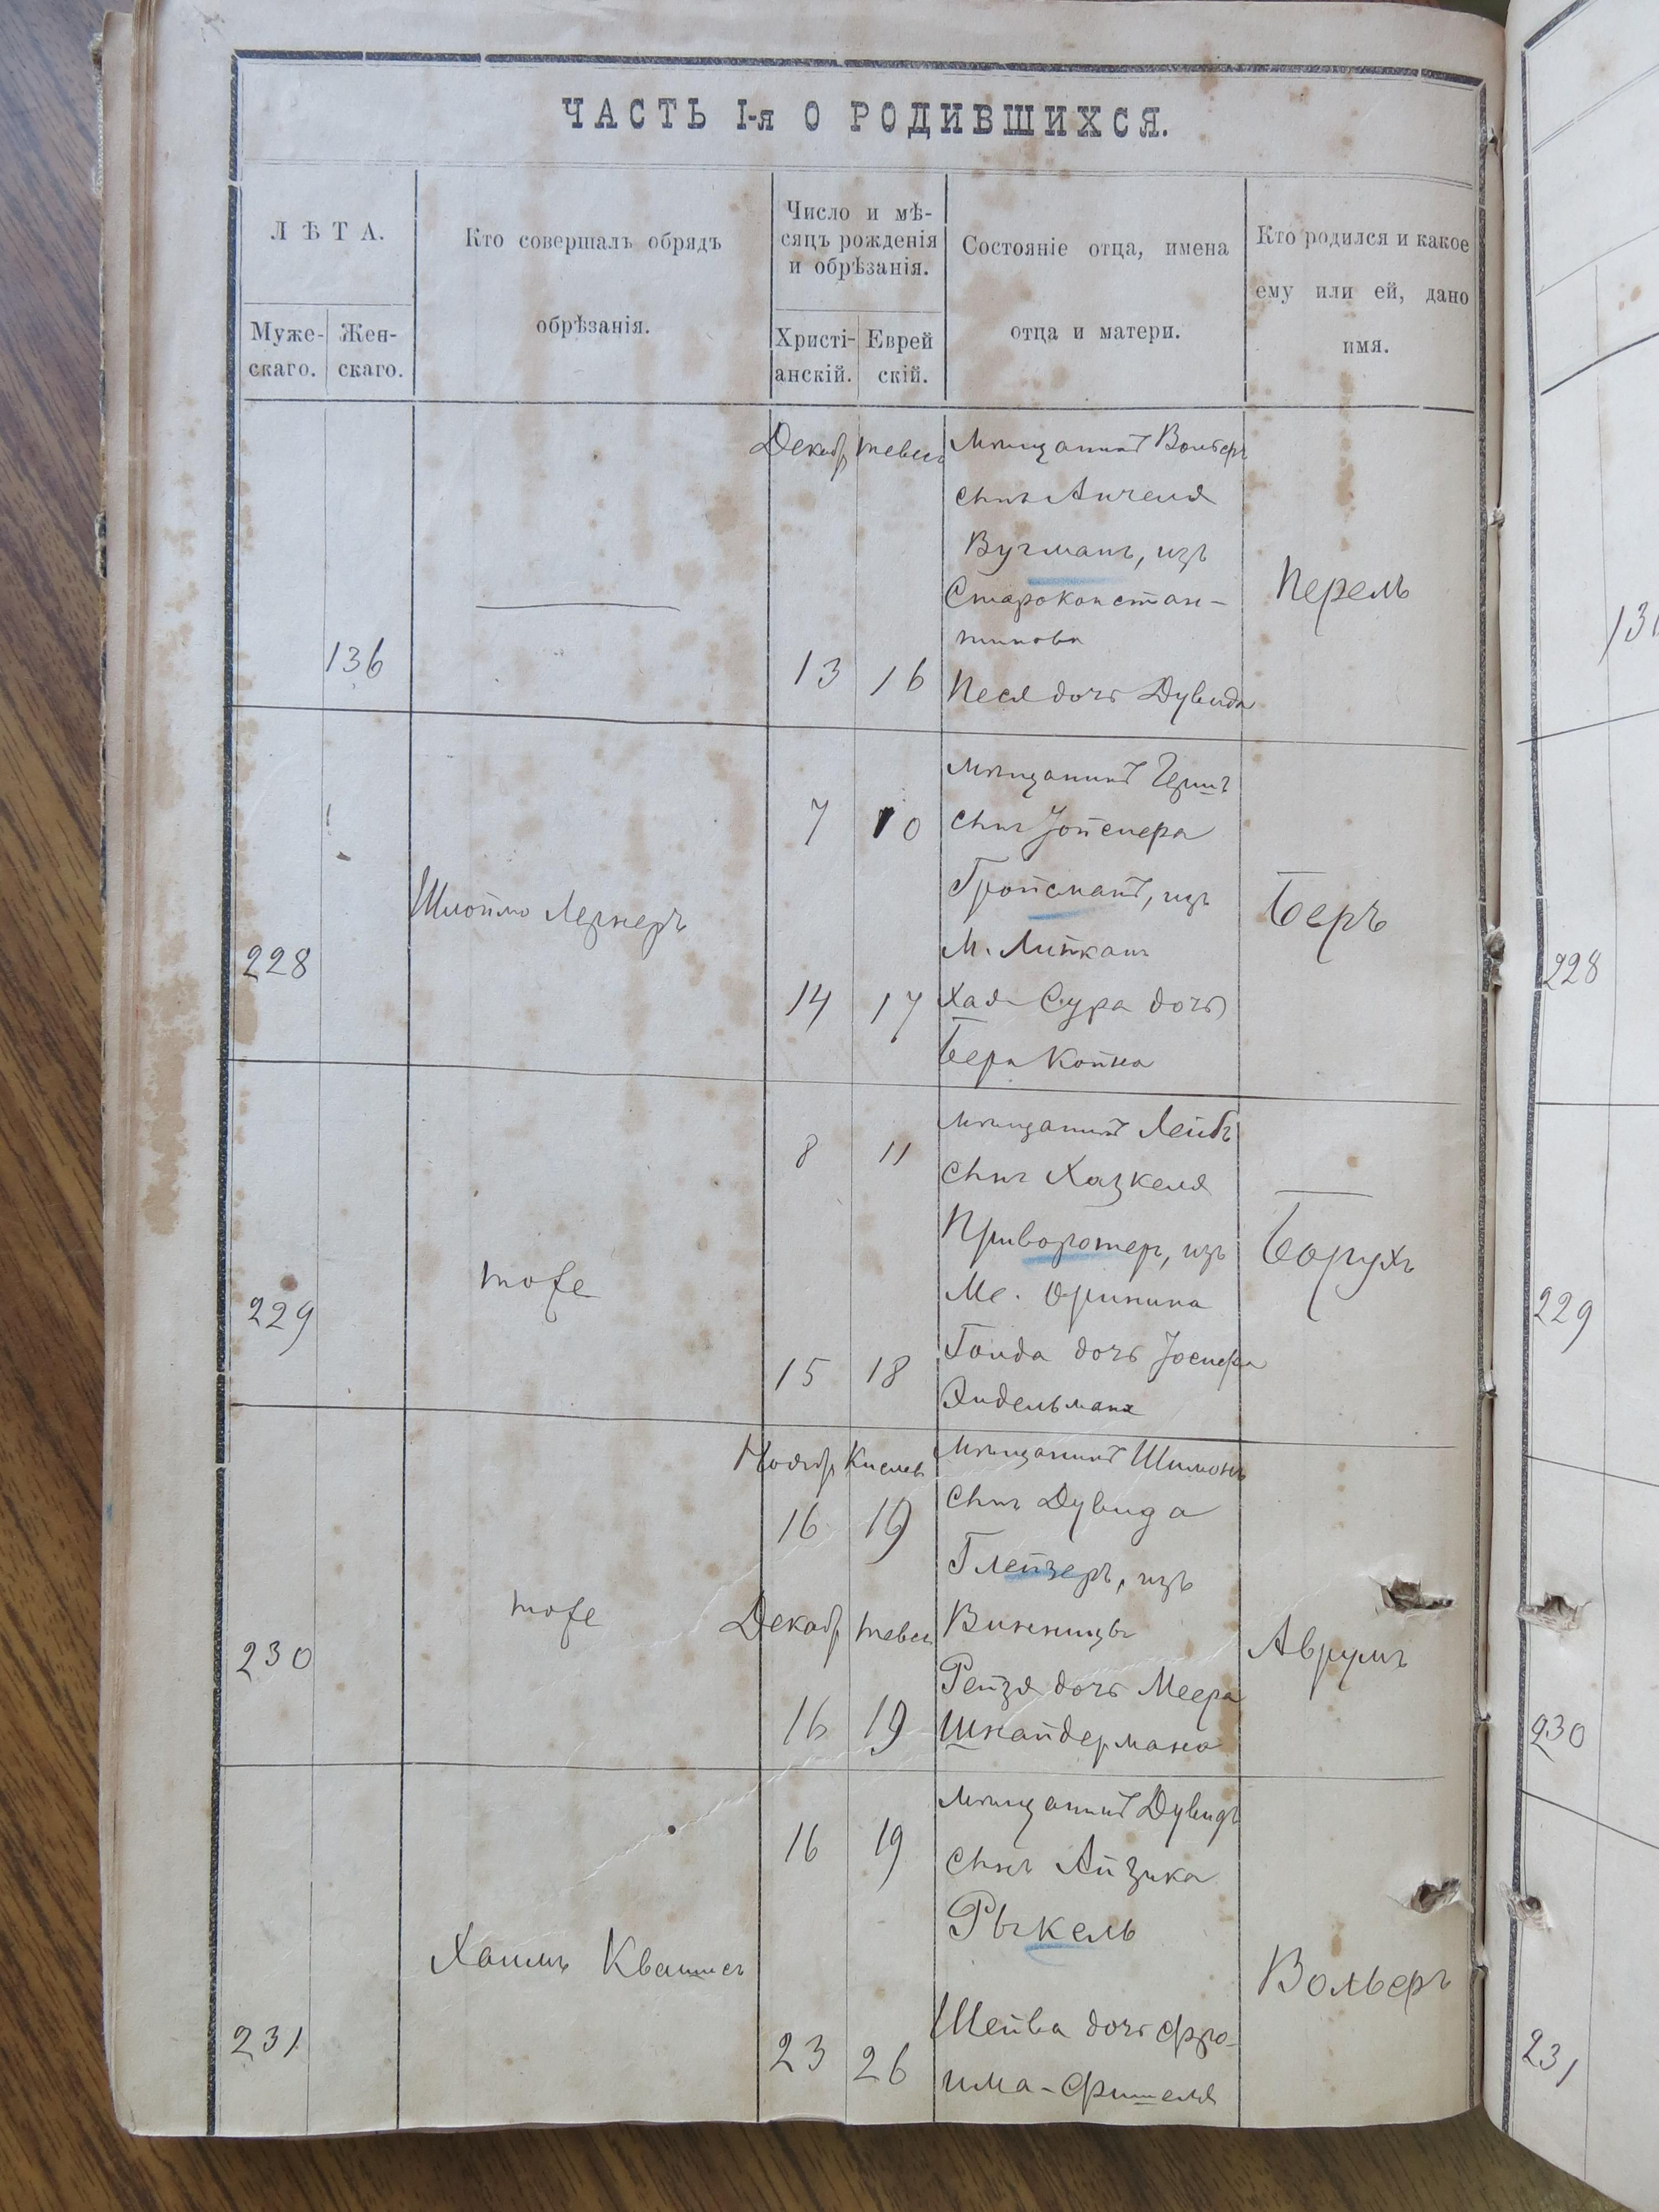 ЧАСТЬ I-я О РОДИВШИХСЯ.
ЛѢТА.
Муже-
скаго.
Жен-
скаго.
Кто совершалъ обрядъ
обрѣзанія.
Число и мѣ-
сяцъ рожденія
и обрѣзанія.
Христі-
анскій.
Еврей
скій.
Состояніе отца, имена
отца и матери.
Кто родился и какое
ему или ей, дано
имя.
136
Декабр тевес
13 16
Мѣщанинъ Вольфъ
сынъ Анчеля
Вугманъ, изъ
Староконстан-
тинова
Песя дочь Дувида
Перель
228
Шлоймо Лернеръ
7 10
14 17
Мѣщанинъ Гершъ
сынъ Іойсифа
Гройсманъ, изъ
М. Липканъ
Хая Сура дочь
Бера Койна
Беръ
229
тоже
8 11
15 18
Мѣщанинъ Лейбъ
сынъ Хазкеля
Приворотеръ, изъ
Ме. Оринина
Голда дочь Іосифа
Эйдельмана
Борухъ
230
тоже
Ноябр Кислев
16 19
Декабр тевес
16 19
Мѣщанинъ Шимонъ
сынъ Дувида
Глейзеръ, изъ
Винницы
Рейзя дочь Меера
Шнайдермана
Аврумъ
231
Хаимъ
16 19
23 26
Мѣщанинъ Дувидъ
сынъ Айзика
Рыкель
Шейва дочь Фро-
има-Фишеля
Вольфъ
131
228
229
230
231